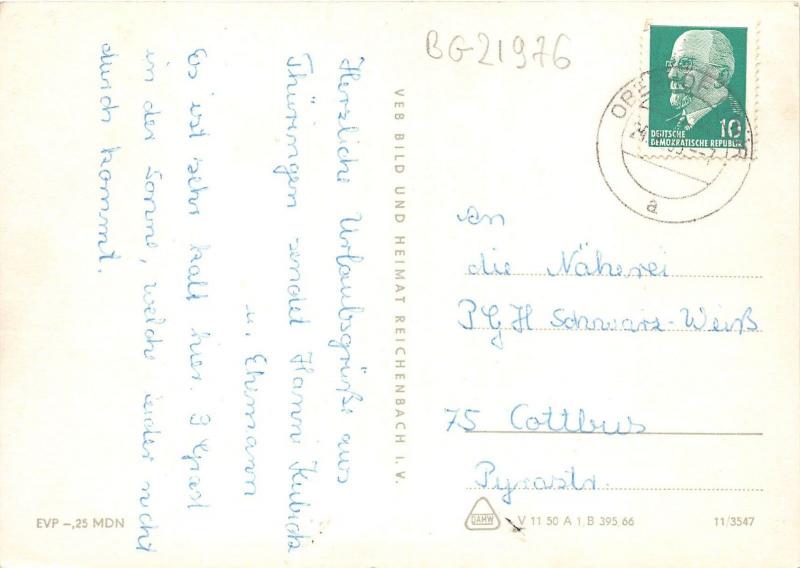 BG21976
Herzliche Urlaubsgrüße aus
Thüringen sendet Hanni Kubick
u. Ehemann
Es ist sehr kalt hier. 3 Grad
in der Sonne, welche leider nicht
durch kommt.
VEB BILD UND HEIMAT REICHENBACH I. V.
10
DEUTSCHE
DEMOKRATISCHE REPUBLIK
a
An
die Näherei
PGH Schwarz-Weiß
75 Cottbus
Pyrastr.
EVP –,25 MDN
DAMW
V 11 50 A 1, B 395/66
11/3547